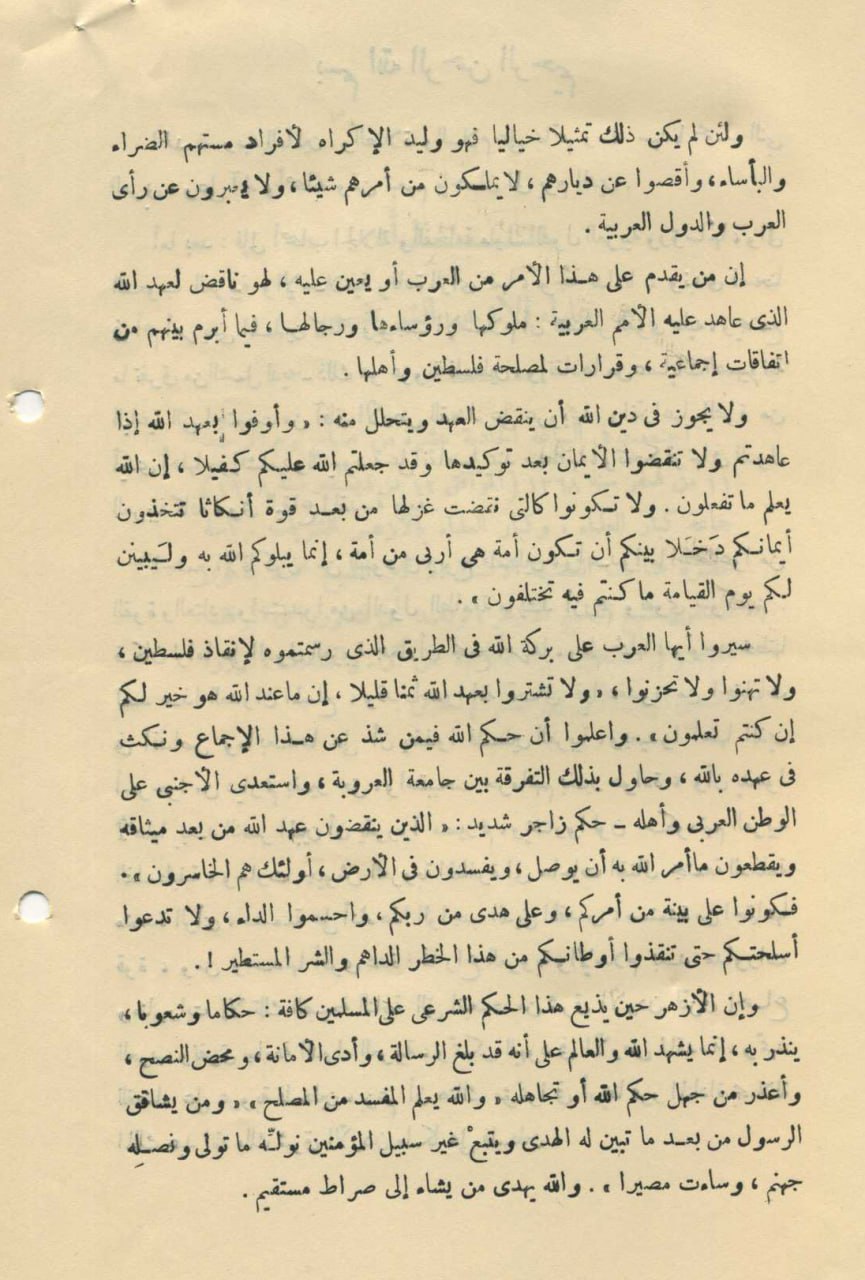 ولئن لم يكن ذلك تمثيلا خياليا فهو وليد الإكراه لأفراد مستهم الضراء
والبأساء، وأقصوا عن ديارهم، لا يملكون من أمرهم شيئا، ولا يعبرون عن رأى
العرب والدول العربية .
إن من يقدم على هذا الأمر من العرب أو يعين عليه ، لهو ناقض لعهد الله
الذى عاهد عليه الأمم العربية : ملوكها ورؤساءها ورجالها ، فيما أبرم بينهم من
اتفاقات إجماعية ، وقرارات لمصلحة فلسطين وأهلها .
ولا يجوز فى دين الله أن ينقض العهد ويتحلل منه : « وأوفوا بعهد الله إذا
عاهدتم ولا تنقضوا الأيمان بعد توكيدها وقد جعلتم الله عليكم كفيلا ، إن الله
يعلم ما تفعلون . ولا تكونوا كالتى نقضت غزلها من بعد قوة أنكاثا تتخذون
أيمانكم دَخَلا بينكم أن تكون أمة هى أربى من أمة ، إنما يبلوكم الله به ولَيبينن
لكم يوم القيامة ما كنتم فيه تختلفون » .
سيروا أيها العرب على بركة الله فى الطريق الذى رسمتموه لإنقاذ فلسطين ،
ولا تهنوا ولا تحزنوا ، « ولا تشتروا بعهد الله ثمنا قليلا ، إن ما عند الله هو خير لكم
إن كنتم تعلمون » . واعلموا أن حكم الله فيمن شذ عن هذا الإجماع ونكث
فى عهده بالله ، وحاول بذلك التفرقة بين جامعة العروبة ، واستعدى الأجنبى على
الوطن العربى وأهله - حكم زاجر شديد : « الذين ينقضون عهد الله من بعد ميثاقه
ويقطعون ما أمر الله به أن يوصل ، ويفسدون فى الأرض ، أولئك هم الخاسرون » .
فكونوا على بينة من أمركم ، وعلى هدى من ربكم ، واحسموا الداء ، ولا تدعوا
أسلحتكم حتى تنقذوا أوطانكم من هذا الخطر الداهم والشر المستطير ! .
وإن الأزهر حين يذيع هذا الحكم الشرعى على المسلمين كافة : حكاما وشعوبا ،
ينذر به ، إنما يشهد الله والعالم على أنه قد بلغ الرسالة ، وأدى الأمانة ، ومحض النصح ،
وأعذر من جهل حكم الله أو تجاهله « والله يعلم المفسد من المصلح » « ومن يشاقق
الرسول من بعد ما تبين له الهدى ويتبعْ غير سبيل المؤمنين نولّه ما تولى ونصلِه
جهنم ، وساءت مصيرا » . والله يهدى من يشاء إلى صراط مستقيم .